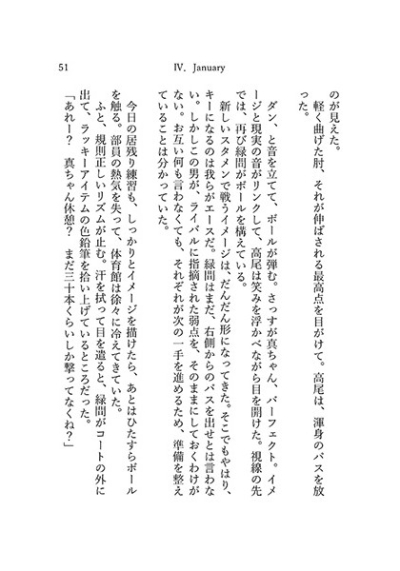 51
Ⅳ. January
のが見えた。
　軽く曲げた肘、それが伸ばされる最高点を目がけて。高尾は、渾身のパスを放
った。
　ダン、と音を立てて、ボールが弾む。さっすが真ちゃん、パーフェクト。イメ
ージと現実の音がリンクして、高尾は笑みを浮かべながら目を開けた。視線の先
では、再び緑間がボールを構えている。
　新しいスタメンで戦うイメージは、だんだん形になってきた。そこでもやはり、
キーになるのは我らがエースだ。緑間はまだ、右側からのパスを出せとは言わな
い。しかしこの男が、ライバルに指摘された弱点を、そのままにしておくわけが
ない。お互い何も言わなくても、それぞれが次の一手を進めるため、準備を整え
ていることは分かっていた。
　今日の居残り練習も、しっかりとイメージを描けたら、あとはひたすらボール
を触る。部員の熱気を失って、体育館は徐々に冷えてきていた。
　ふと、規則正しいリズムが止む。汗を拭って目を遣ると、緑間がコートの外に
出て、ラッキーアイテムの色鉛筆を拾い上げているところだった。
「あれー？　真ちゃん休憩？　まだ三十本くらいしか撃ってなくね？」